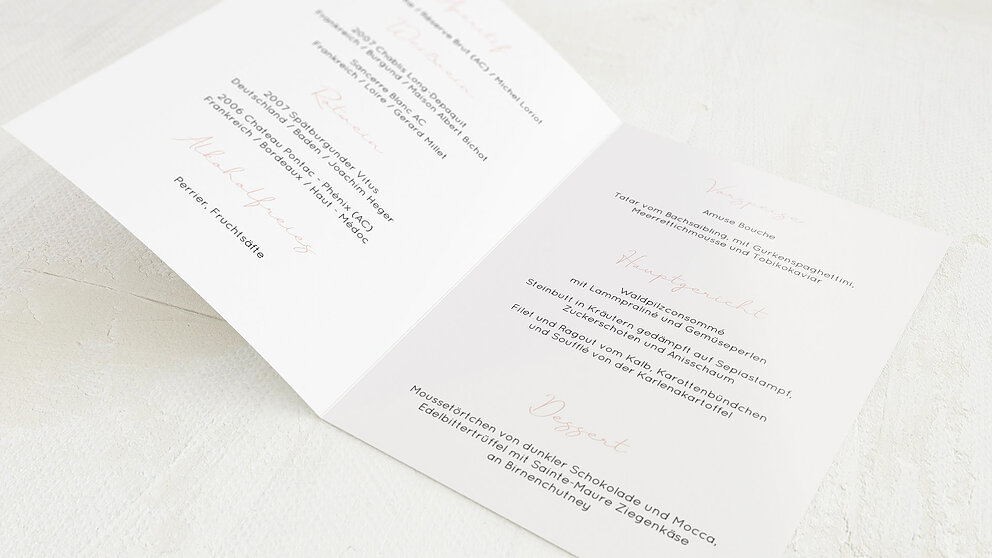 Aperitif
/ Réserve Brut (AC) / Michel Loriot
Weißwein
2007 Chablis Long-Depaquit
Frankreich / Burgund / Maison Albert Bichot
Sancerre Blanc AC
Frankreich / Loire / Gerard Millet
Rotwein
2007 Spätburgunder Vitus
Deutschland / Baden / Joachim Heger
2006 Chateau Pontac - Phénix (AC)
Frankreich / Bordeaux / Haut - Médoc
Alkoholfreies
Perrier, Fruchtsäfte
Vorspeise
Amuse Bouche
Tatar vom Bachsaibling, mit Gurkenspaghettini,
Meerrettichmousse und Tobikokaviar
Hauptgericht
Waldpilzconsommé
mit Lammpraliné und Gemüseperlen
Steinbutt in Kräutern gedämpft auf Sepiastampf,
Zuckerschoten und Anisschaum
Filet und Ragout vom Kalb, Karottenbündchen
und Soufflé von der Karlenakartoffel
Dessert
Moussetörtchen von dunkler Schokolade und Mocca,
Edelbittertrüffel mit Sainte-Maure Ziegenkäse
an Birnenchutney